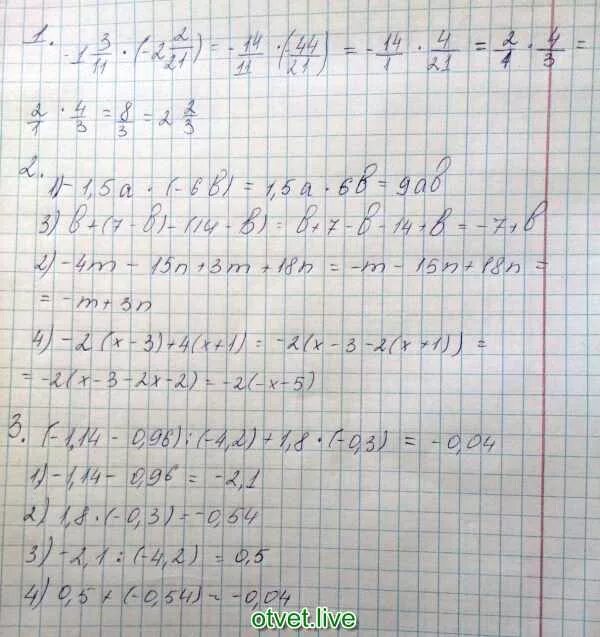 1. -1 3/11 · (-2 2/21) = -14/11 · (-44/21) = -14/1 · 4/21 = 2/1 · 4/3 =
2/1 · 4/3 = 8/3 = 2 2/3
2. 1) -1,5a · (-6b) = 1,5a · 6b = 9ab
3) b+(7-b)-(14-b) = b+7-b-14+b = -7+b
2) -4m - 15n+3m+18n = -m-15n+18n =
= -m+3n
4) -2(x-3)+4(x+1) = -2(x-3-2(x+1)) =
= -2(x-3-2x-2) = -2(-x-5)
3. (-1,14-0,96):(-4,2)+1,8·(-0,3) = -0,04
1) -1,14-0,96 = -2,1
2) 1,8·(-0,3) = -0,54
3) -2,1:(-4,2) = 0,5
4) 0,5+(-0,54) = -0,04
otvet.live